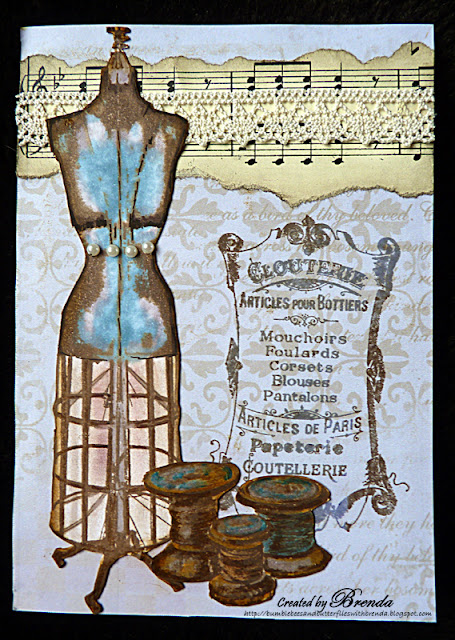 as a bird thy beloved.
CLOUTERIE
ARTICLES POUR BOTTIERS
Mouchoirs
Foulards
Corsets
Blouses
Pantalons
ARTICLES DE PARIS
Papeterie
COUTELLERIE
were they h
Created by Brenda
http://bumblebeesandbutterflieswithbrenda.blogspot.com